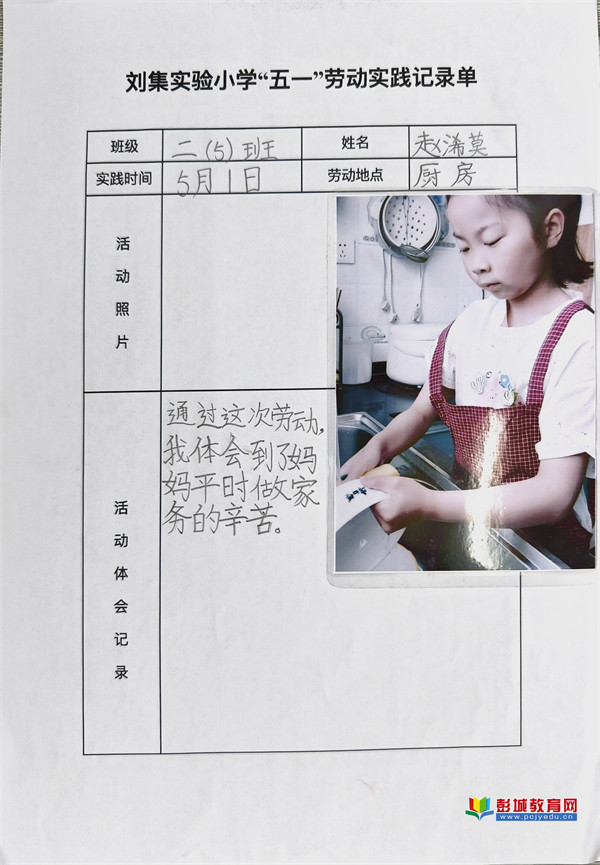 刘集实验小学“五一”劳动实践记录单
班级 二(5)班 姓名 赵浠莫
实践时间 5月1日 劳动地点 厨房
活动照片
活动体会记录
通过这次劳动,
我体会到了妈
妈平时做家
务的辛苦。
彭城教育网
www.pcjyedu.cn